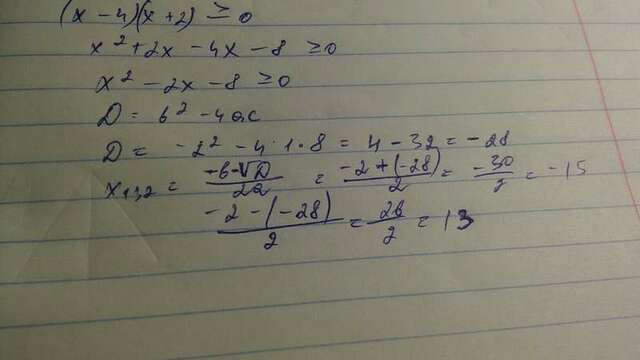 (x - 4)(x + 2) ≥ 0
x² + 2x - 4x - 8 ≥ 0
x² - 2x - 8 ≥ 0
D = b² - 4ac
D = -2² - 4·1·8 = 4 - 32 = -28
x₁,₂ = (-b-√D)/2a = (-2+(-28))/2 = -30/2 = -15
(-2-(-28))/2 = 26/2 = 13